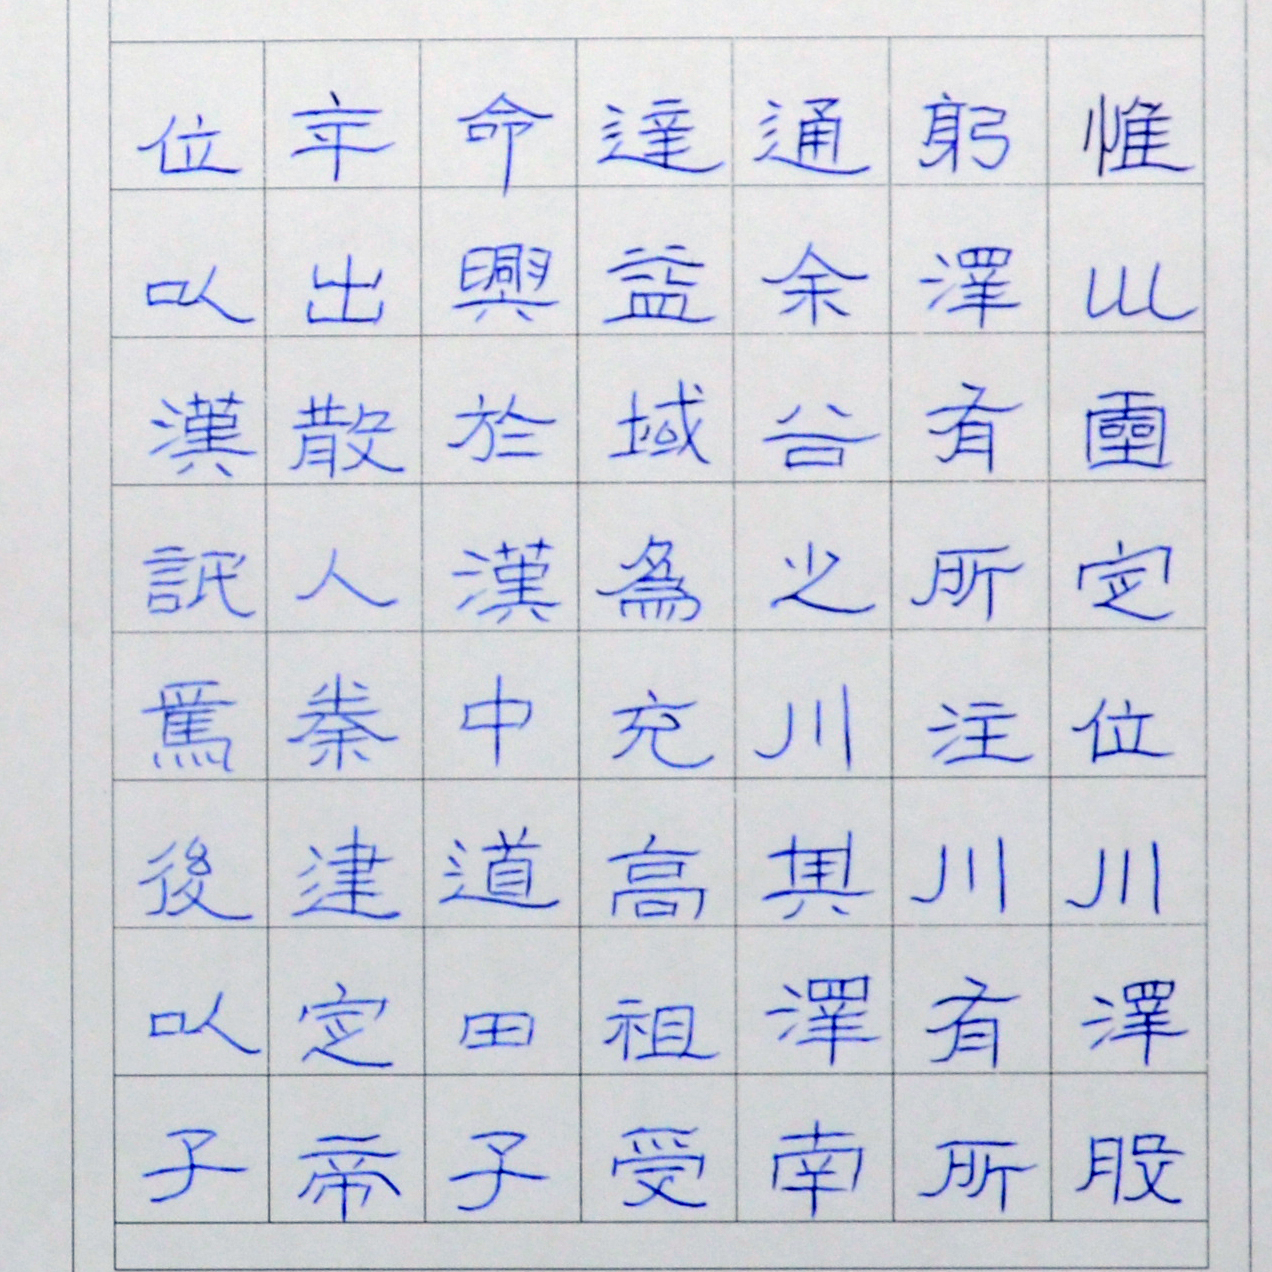 惟山霊定位川澤股
躬澤有所注川有所
通余谷之川其澤南
達益域爲充高祖受
命興於漢中道由子
年出散人秦建定帝
位以漢詆焉後以子